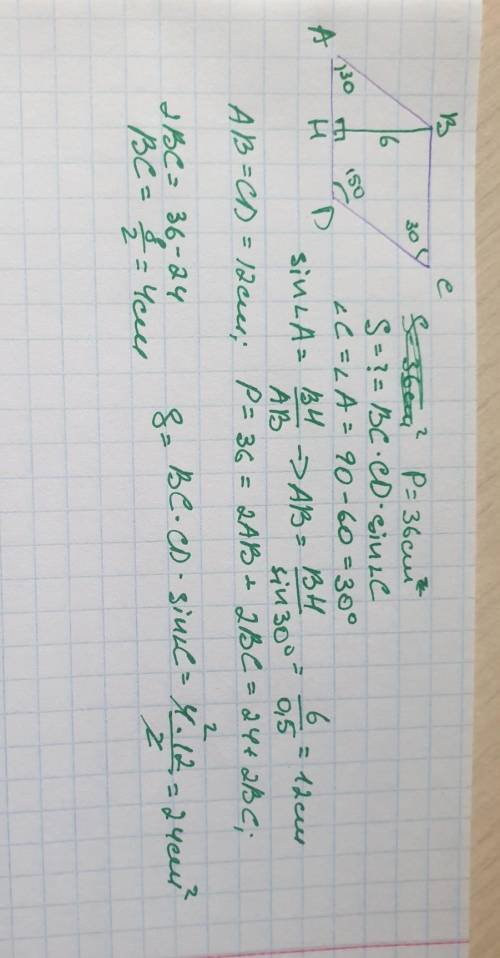 A B C H D
30 6 150 30
S=36см² P=36см²
S=?=BC·CD·sin∠C
∠C=∠A=90-60=30°
sin∠A= BH/AB → AB= BH/sin30° = 6/0,5 =12см
AB=CD=12см; P=36=2AB+2BC=24+2BC;
2BC=36-24
BC= 8/2 =4см S=BC·CD·sin∠C= 4·12/2 =24см²